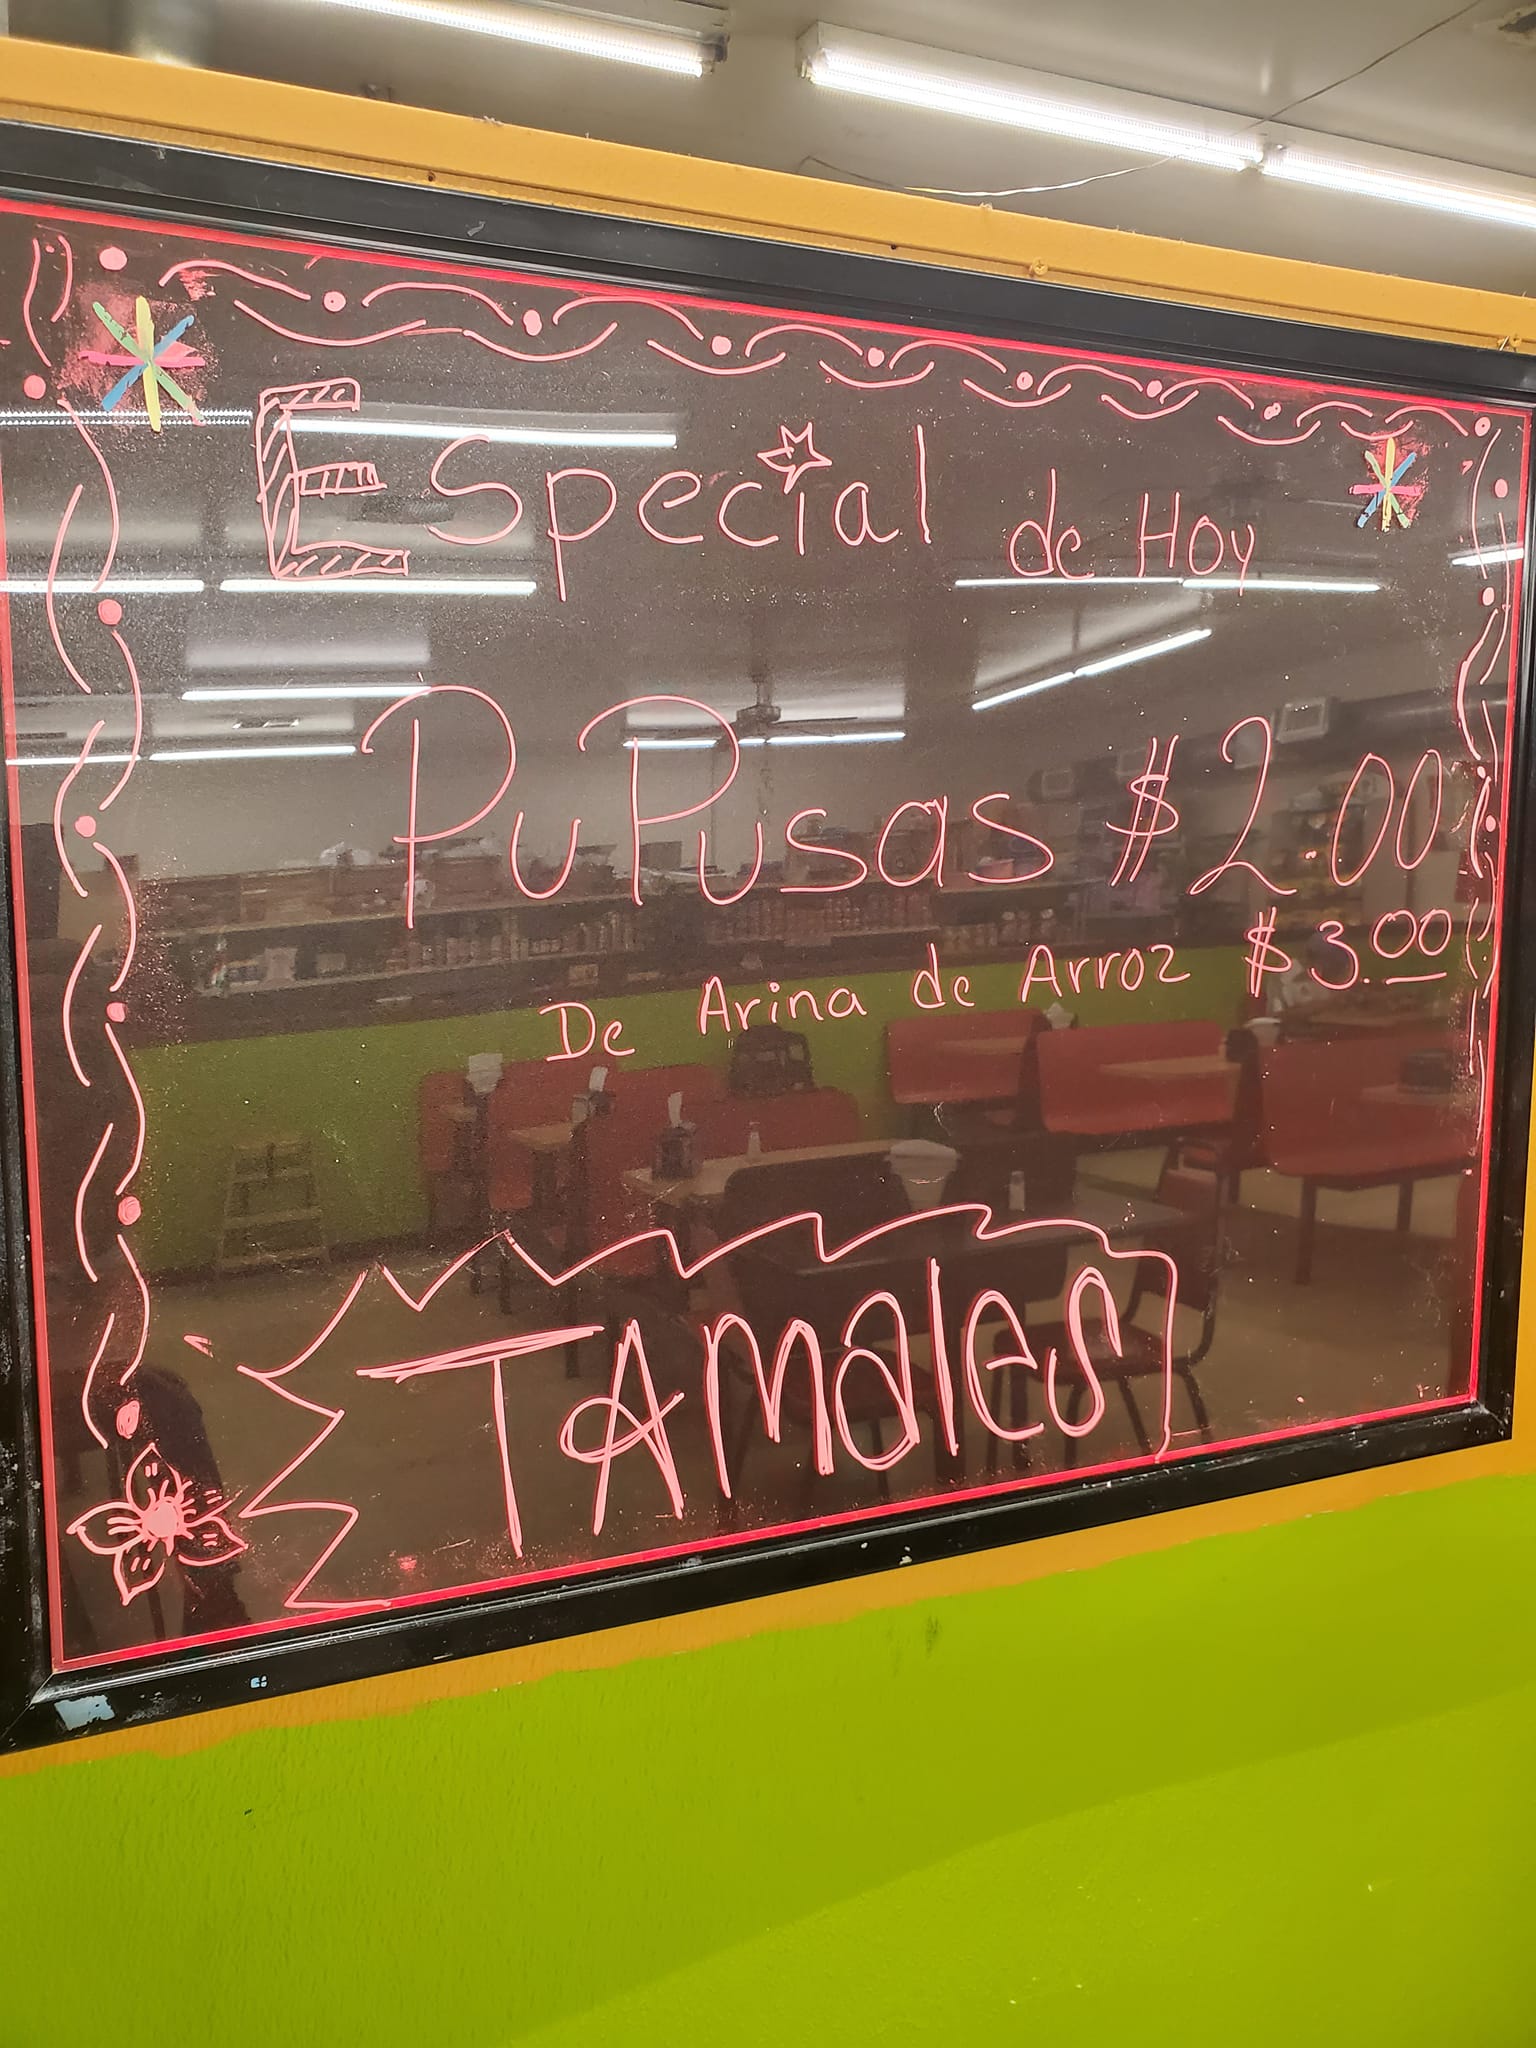 Especial de Hoy
PuPusas $2.00
De Arina de Arroz $3.00
TAMales